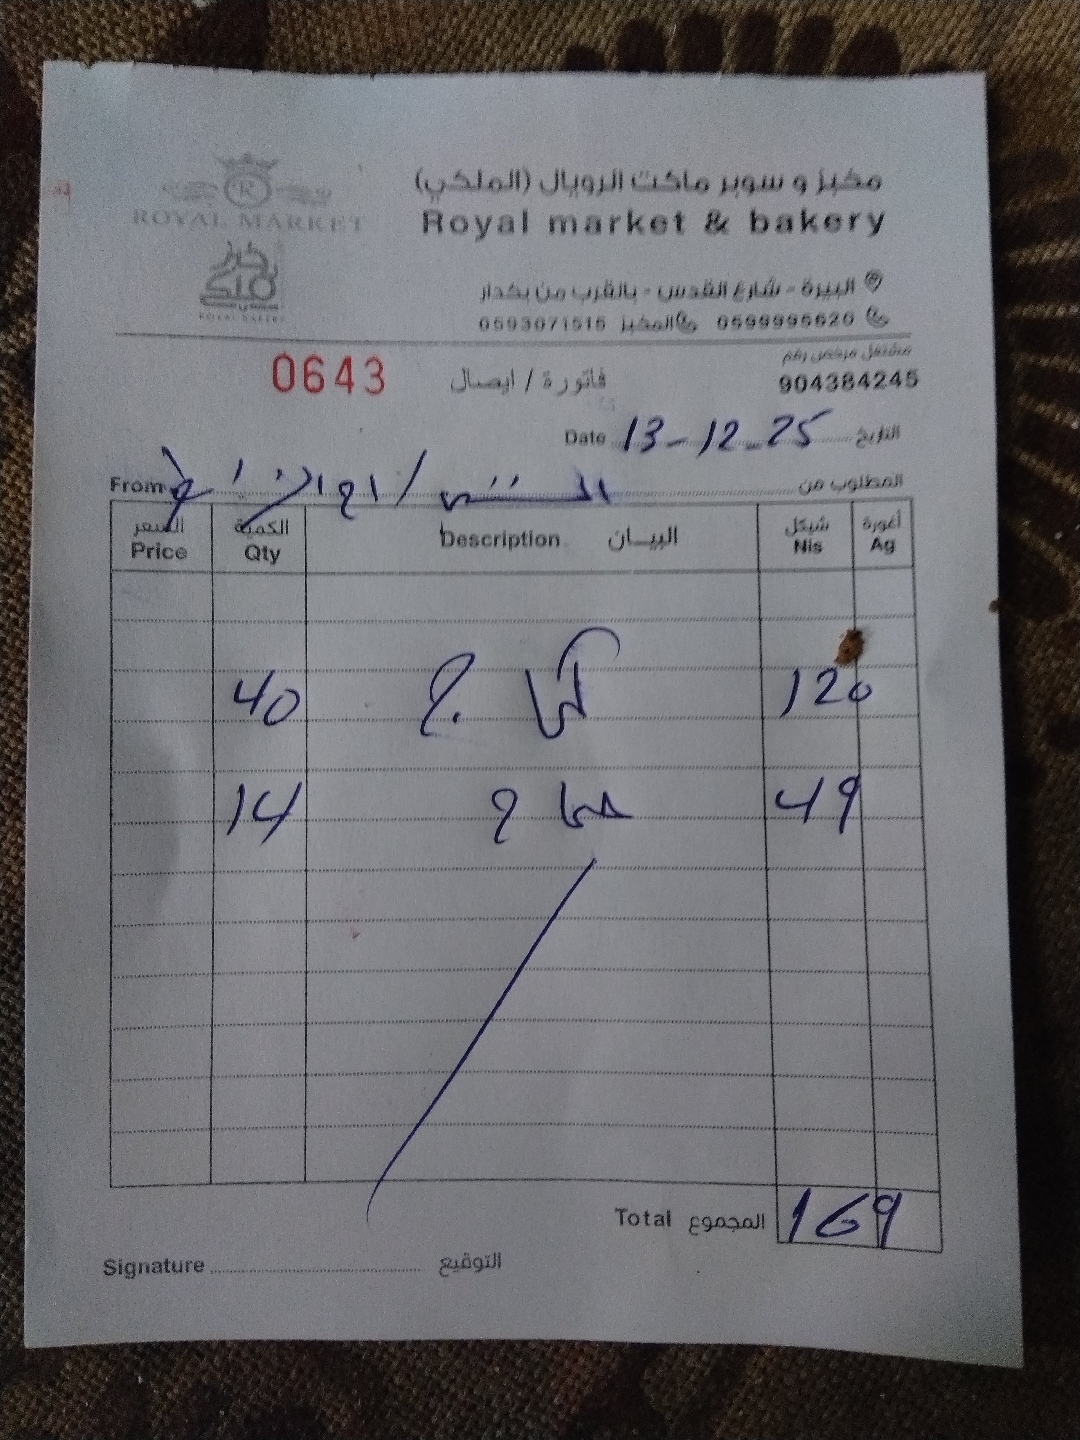 ROYAL MARKET
ROYAL BAKERY
مخبز و سوبر ماركت الرويال (الملكي)
Royal market & bakery
البيرة - شارع القدس - بالقرب من بكدار
0599995620 المخبز 0593071515
مشتغل مرخص رقم
904384245
فاتورة / ايصال 0643
التاريخ 13-12-25 Date
المطلوب من From
السعر الكمية البيان شيكل أغورة
Price Qty Description Nis Ag
40 كماج 120
14 49
Total المجموع 169
Signature التوقيع